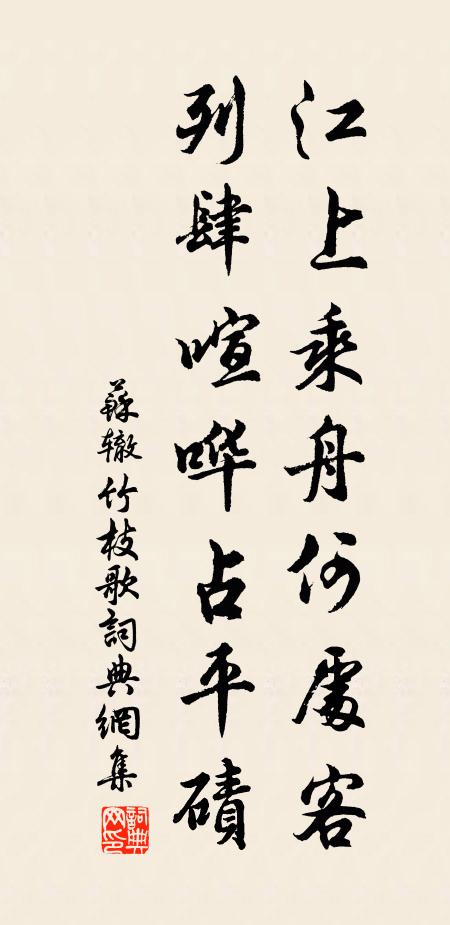 江上乘舟何處客
列肆喧哗占平磧
蘇辙竹枝歌詞典網集
詞典網印